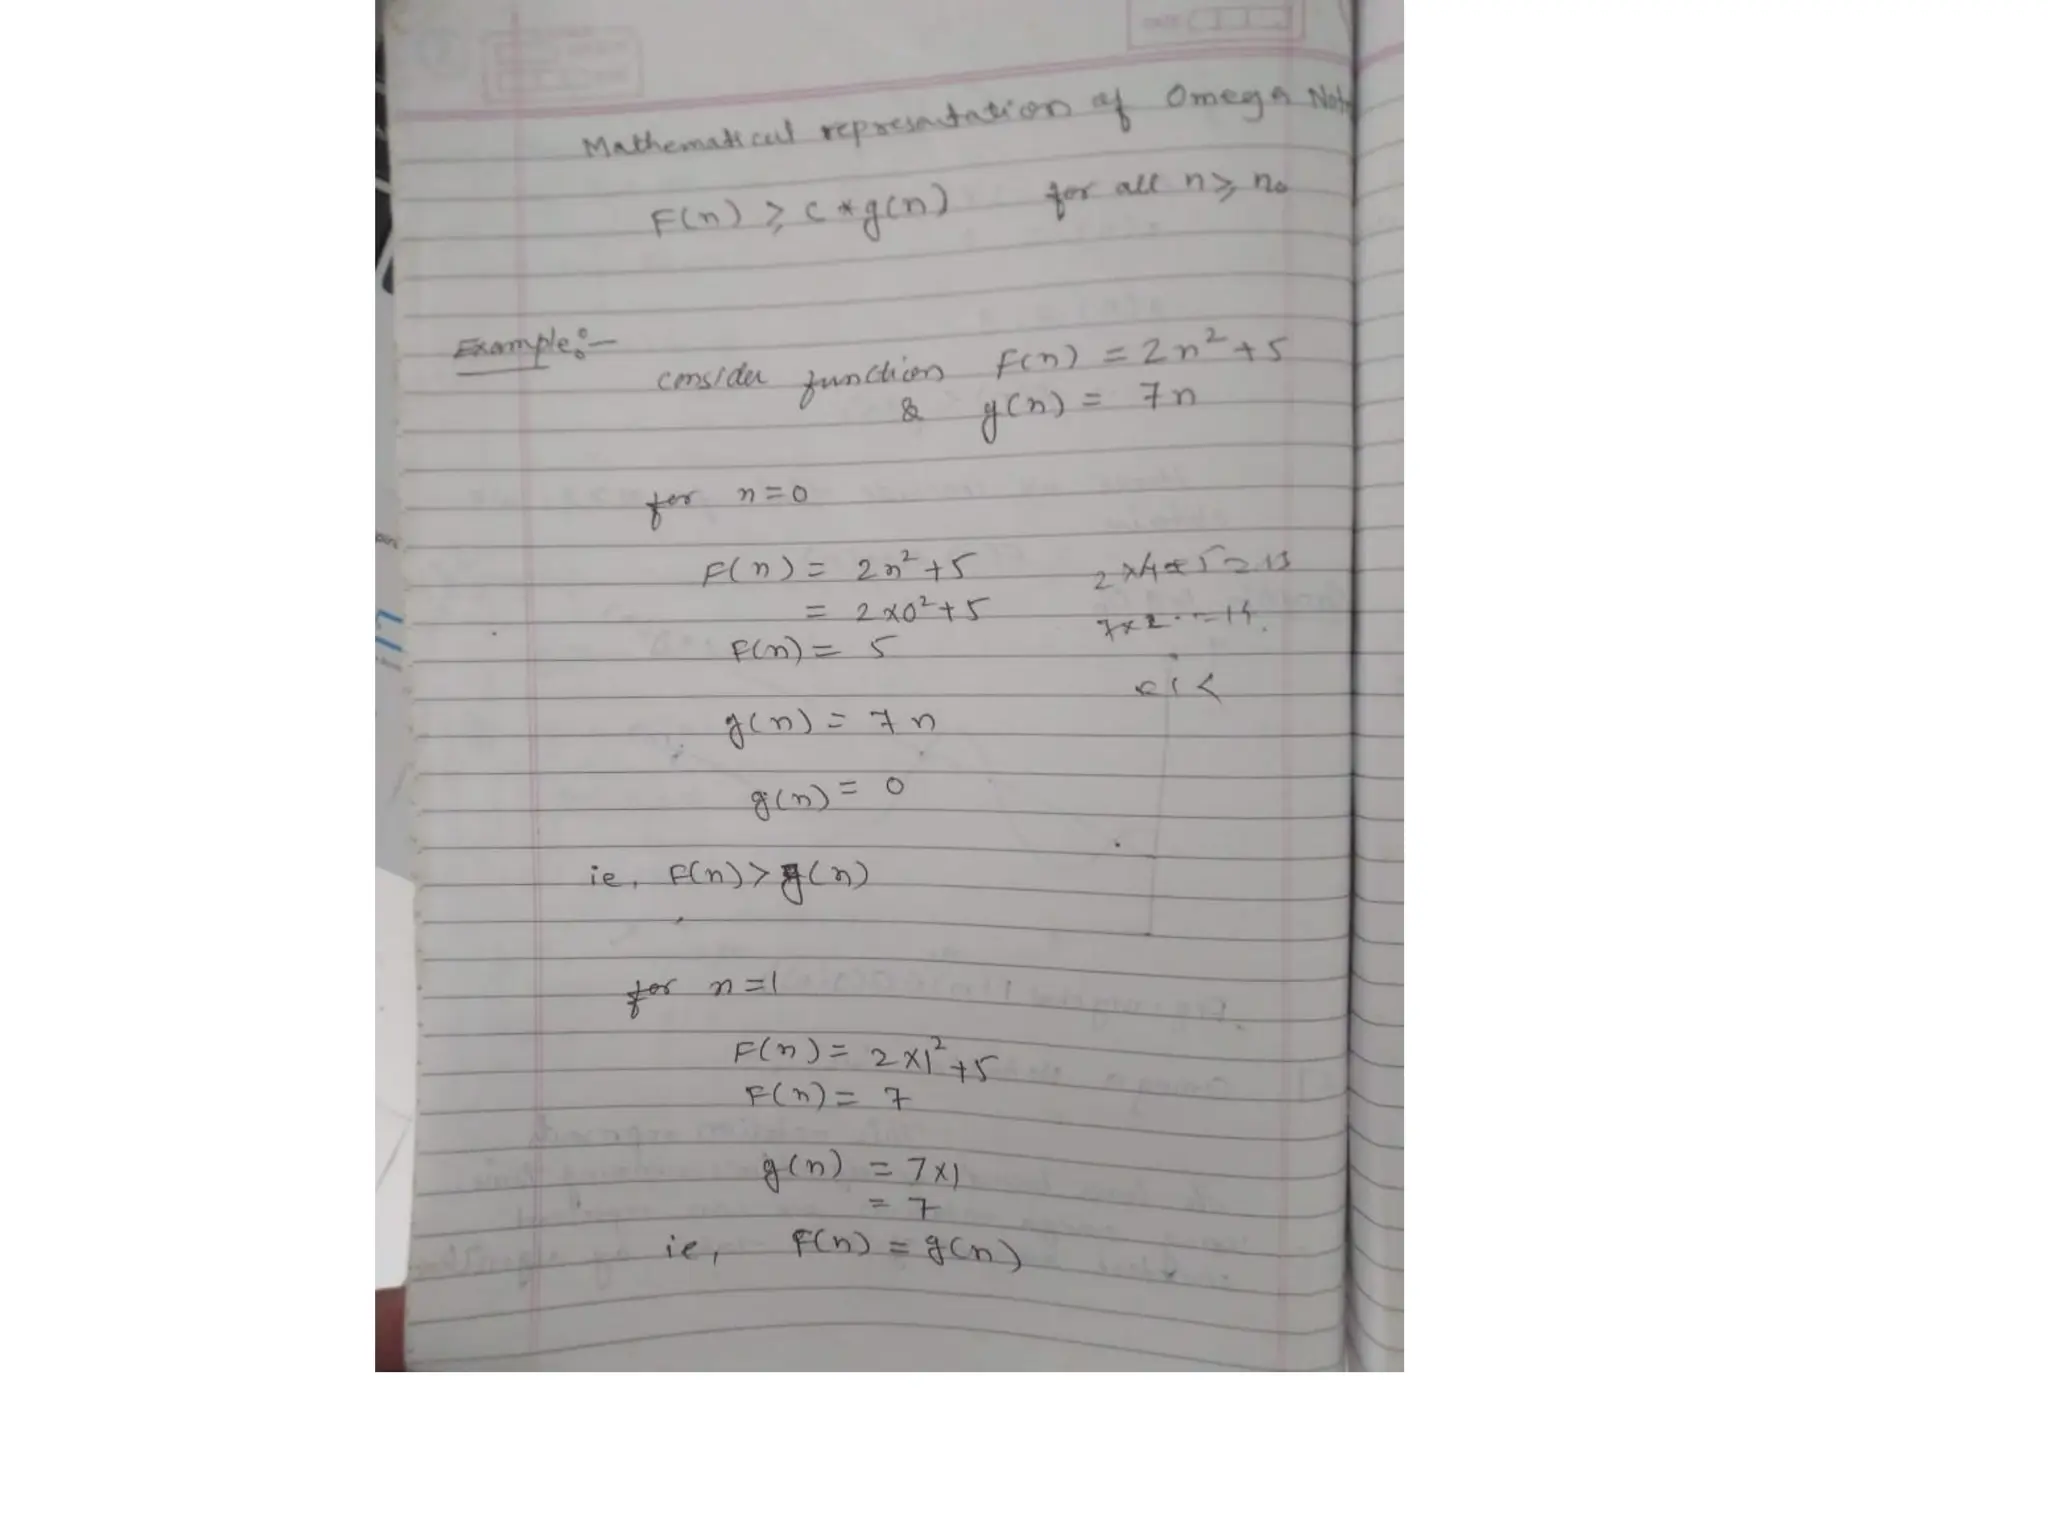 Mathematical representation of Omega Not
F(n) ≥ c * g(n) for all n ≥ n₀
Example:-
consider function F(n) = 2n² + 5
& g(n) = 7n
for n = 0
F(n) = 2n² + 5
= 2×0² + 5
F(n) = 5
2×4+5=13
7×2 = 14.
g(n) = 7n
g(n) = 0
ie, F(n) > g(n)
for n = 1
F(n) = 2×1² + 5
F(n) = 7
g(n) = 7×1
= 7
ie, F(n) = g(n)